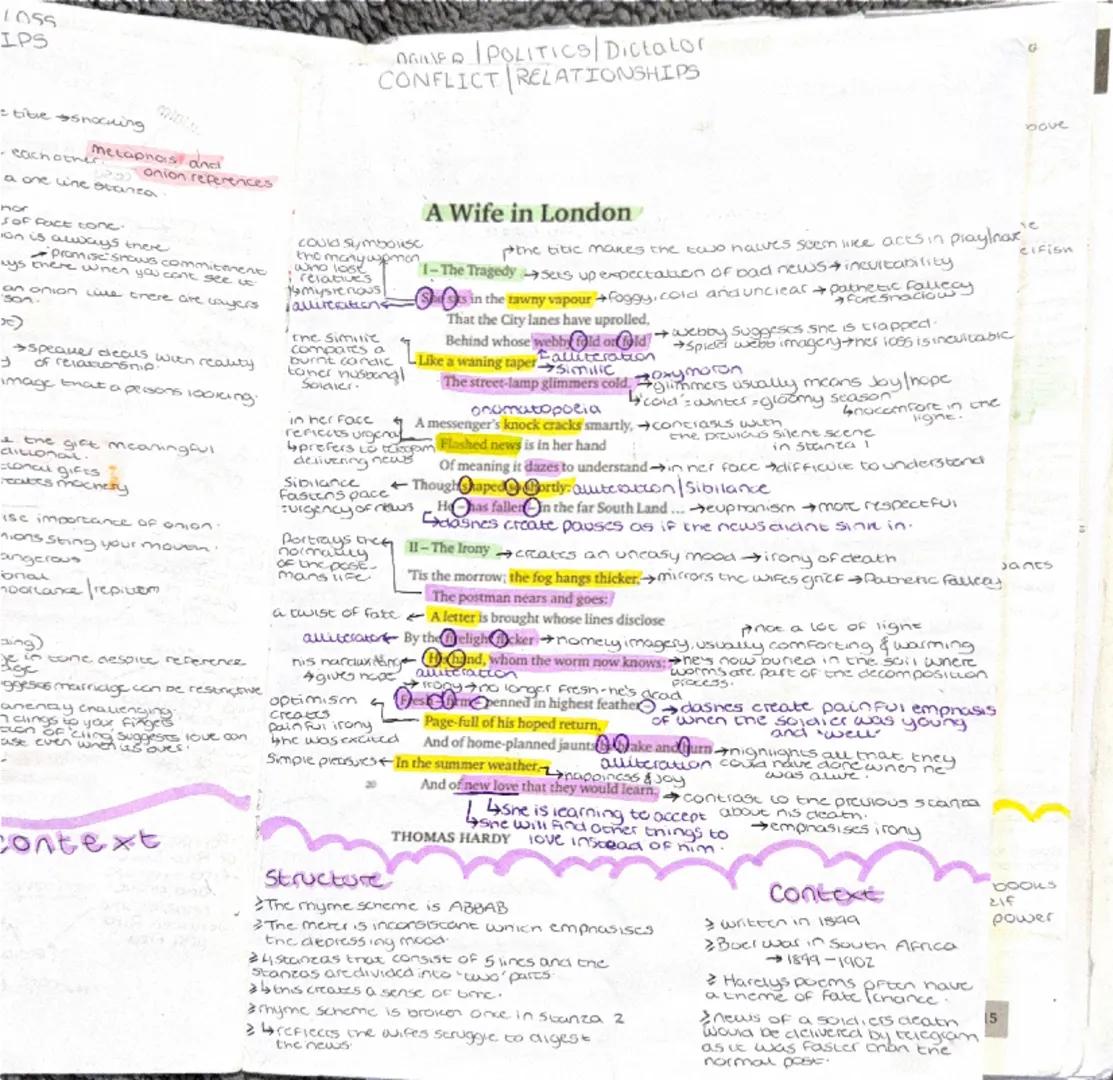 LOSS
IPS
title → shocking
each other.
metaphors and
onion references
a one line stanza.
of fact tone.
ion is always there
→ promise shows commitment
ays there when you cant see it
an onion like there are layers
→ speaker deals with reality
of relationship.
image that a persons looking.
the gift meaningful
ditional.
tional gifts
importance of onion.
nions sting your mouth.
angerous
in tone despite reference
suggests marriage can be restrictive
challenging.
clings to your fingers
'cling' suggests love can
even when its over.
context
| POLITICS | Dictator
CONFLICT | RELATIONSHIPS
A Wife in London
the title makes the two halves seem like acts in play
could symbolise
the many women
who lost
relatives
↳ mysterious
alliteration
I – The Tragedy → sets up expectation of bad news → inevitability
She sits in the tawny vapour → foggy, cold and unclear → pathetic fallacy
→ foreshadow
That the City lanes have uprolled,
Behind whose webby fold on fold → webby suggests she is trapped.
→ spider webb imagery → her loss is inevitable
alliteration
the similie
compares a
burnt candle
to her husband/
soldier.
Like a waning taper → similie
The street-lamp glimmers cold. → oxymoron
→ glimmers usually means Joy/hope
↳ 'cold' = winter = gloomy season
↳ no comfort in the
light.
onomatopoeia
A messenger's knock cracks smartly, → contrasts with
the previous silent scene
in stanza 1
in her face
reflects urgency
↳ refers to telegram
delivering news
Flashed news is in her hand
Of meaning it dazes to understand → in her face → difficult to understand
Sibilance
fastens pace
= urgency of news
Though shaped so shortly: alliteration | Sibilance
He – has fallen – in the far South Land ... → euphanism → more respectful
↳ dashes create pauses as if the news didnt sink in.
Portrays the
normality
of the post-
mans life.
II – The Irony → creates an uneasy mood → irony of death
'Tis the morrow; the fog hangs thicker, → mirrors the wifes grief → Pathetic Fallacy
The postman nears and goes:
a twist of fate ← A letter is brought whose lines disclose
→ not a lot of light
alliteration ← By the firelight flicker → homely imagery, usually comforting & warming
his handwriting
→ gives hope
His hand, whom the worm now knows: → he's now buried in the soil where
worms are part of the decomposition
process.
alliteration
→ irony → no longer fresh - he's dead
optimism
creates
painful irony
↳ he was excited
Fresh – firm – penned in highest feather – → dashes create painful emphasis
of when the soldier was young
and 'well'
Page-full of his hoped return,
And of home-planned jaunts by brake and burn → highlights all that they
could have done when he
was alive.
alliteration
Simple pleasures ← In the summer weather,
→ happiness & joy
20 And of new love that they would learn. → contrast to the previous stanza
about his death.
→ emphasises irony
↳ she is learning to accept
↳ she will find other things to
love instead of him.
THOMAS HARDY
Structure
> The rhyme scheme is ABBAB
> The meter is inconsistant which emphasises
the depressing mood.
> 4 stanzas that consist of 5 lines and the
stanzas are divided into 'two' parts.
> ↳ this creates a sense of time.
> rhyme scheme is broken once in stanza 2
> ↳ reflects the wifes struggle to digest
the news.
Context
> written in 1899
> Boer war in South Africa
→ 1899 - 1902
> Hardys poems often have
a theme of fate/chance.
> news of a soldiers death
would be delivered by telegram
as it was faster than the
normal post.
elfish
books
power
5